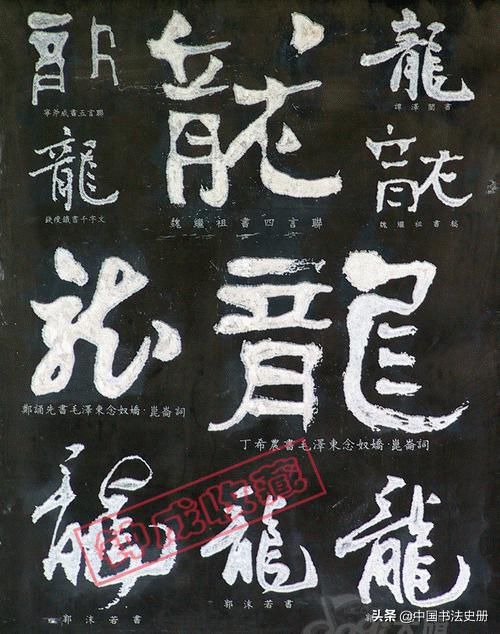 龍
寧斧成書五言聯
龍
魏繼祖書四言聯
龍
譚澤闓書
龍
錢瘦鐵書千字文
龍
魏繼祖書稿
龍
鄭誦先書毛澤東念奴嬌·崑崙詞
龍
丁希農書毛澤東念奴嬌·崑崙詞
龍
郭沫若書
龍
郭沫若書
龍
成收藏
头条 @中国书法史册